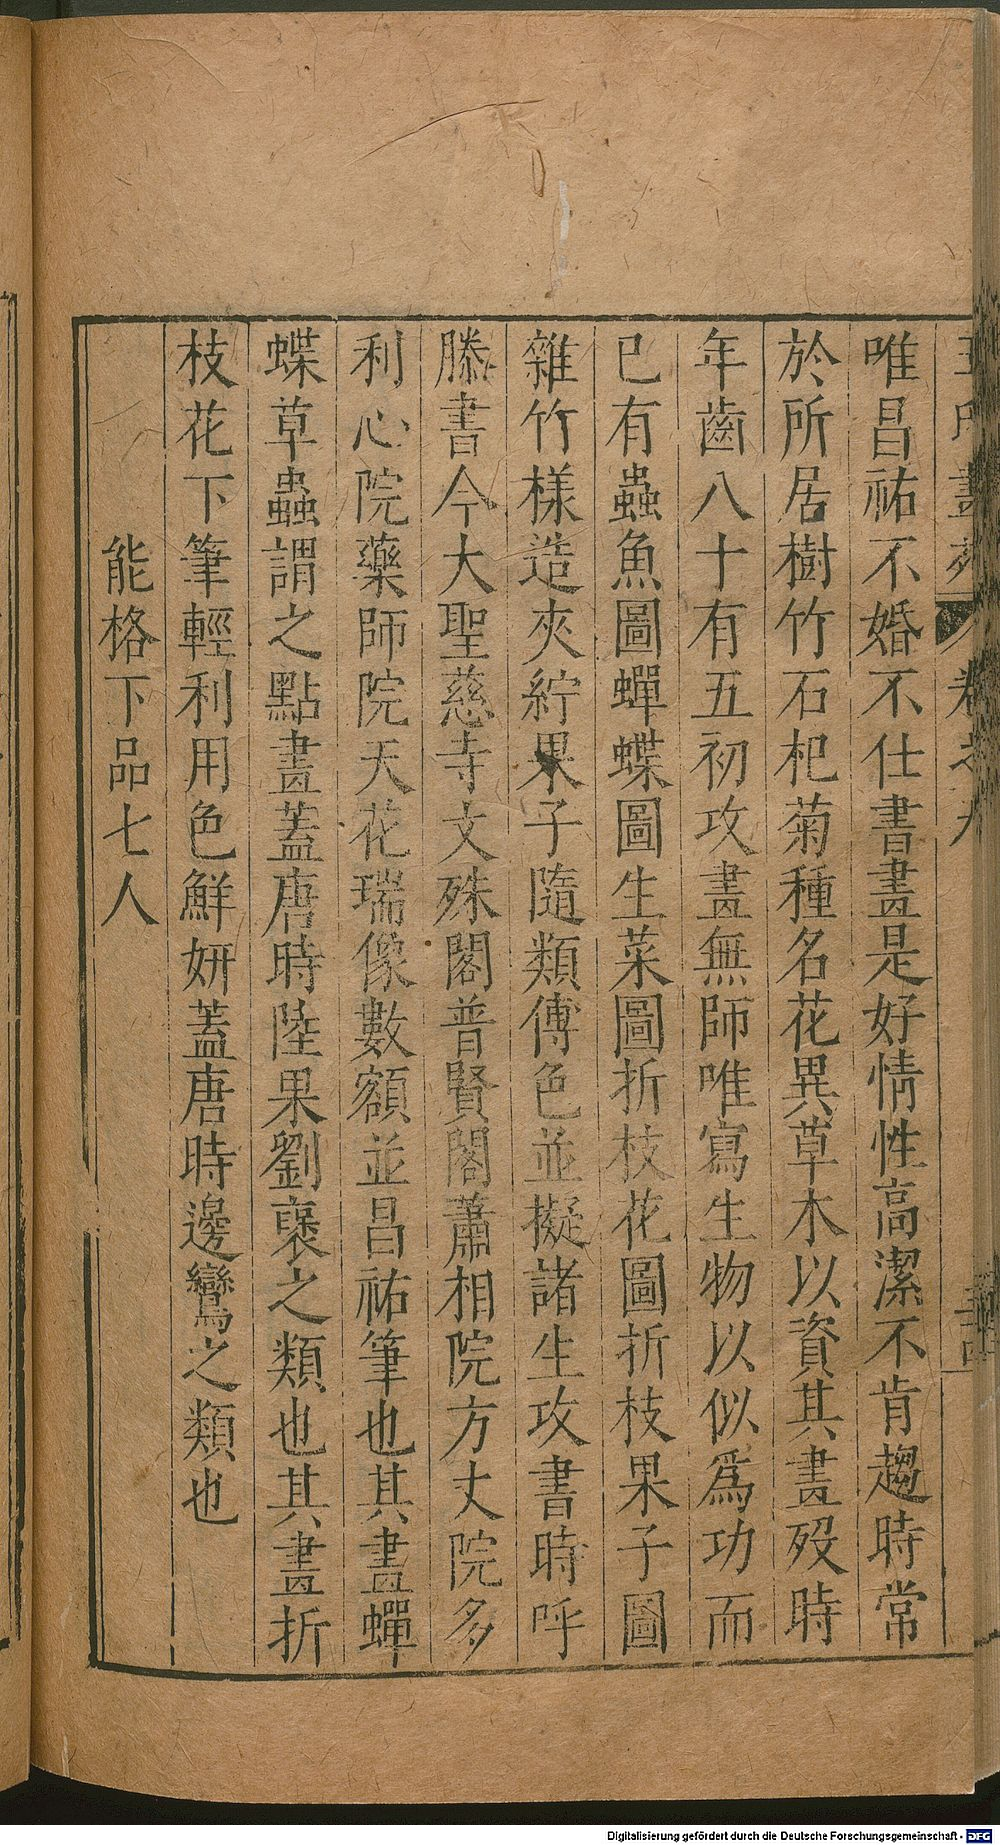 唯昌祐不婚不仕書畫是好情性高潔不肯趨時常
於所居樹竹石杞菊種名花異草木以資其畫歿時
年齒八十有五初攻畫無師唯寫生物以似爲功而
已有蟲魚圖蟬蝶圖生菜圖折枝花圖折枝果子圖
雜竹様造夾紵果子隨類傅色並擬諸生攻書時呼
滕書今大聖慈寺文殊閣普賢閣蕭相院方丈院多
利心院藥師院天花瑞像數額並昌祐筆也其畫蟬
蝶草蟲謂之點畫蓋唐時陸果劉褒之類也其畫折
枝花下筆輕利用色鮮妍蓋唐時邊鸞之類也
能格下品七人
Digitalisierung gefördert durch die Deutsche Forschungsgemeinschaft - DFG